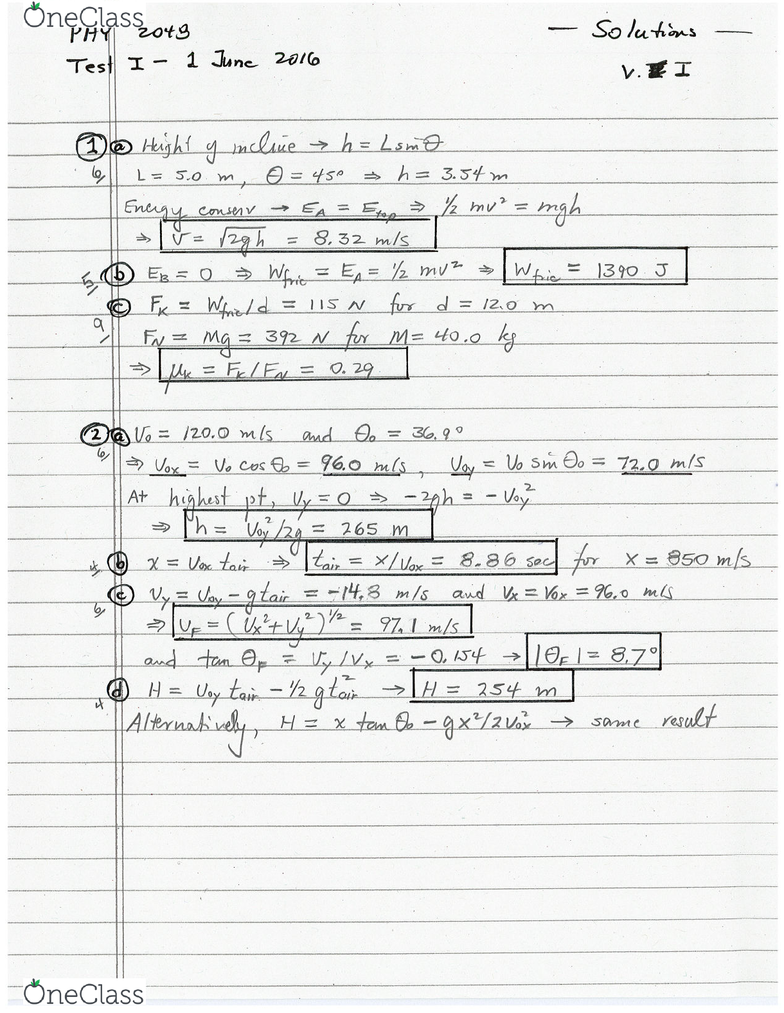 OneClass
PHY 2049
— Solutions —
Test I - 1 June 2016
V. I
① ⓐ Height of incline → h = L sin θ
6/ L = 5.0 m, θ = 45° ⇒ h = 3.54 m
Energy conserv → E_A = E_top ⇒ ½ mv² = mgh
⇒ v = √2gh = 8.32 m/s
5/ ⓑ E_B = 0 ⇒ W_fric = E_A = ½ mv² ⇒ W_fric = 1390 J
ⓒ F_K = W_fric/d = 115 N for d = 12.0 m
9/ F_N = Mg = 392 N for M = 40.0 kg
⇒ μ_K = F_K/F_N = 0.29
② ⓐ V₀ = 120.0 m/s and θ₀ = 36.9°
6/ ⇒ V₀x = V₀ cos θ₀ = 96.0 m/s, V₀y = V₀ sin θ₀ = 72.0 m/s
At highest pt, Vy = 0 ⇒ -2gh = -V₀y²
⇒ h = V₀y²/2g = 265 m
4/ ⓑ x = V₀x t_air ⇒ t_air = x/V₀x = 8.86 sec for x = 850 m/s
ⓒ Vy = V₀y - g t_air = -14.8 m/s and Vx = V₀x = 96.0 m/s
6/ ⇒ V_F = (Vx² + Vy²)^1/2 = 97.1 m/s
and tan θ_F = Vy/Vx = -0.154 → |θ_F| = 8.7°
4/ ⓓ H = V₀y t_air - ½ g t_air² → H = 254 m
Alternatively, H = x tan θ₀ - gx²/2V₀x² → same result
OneClass